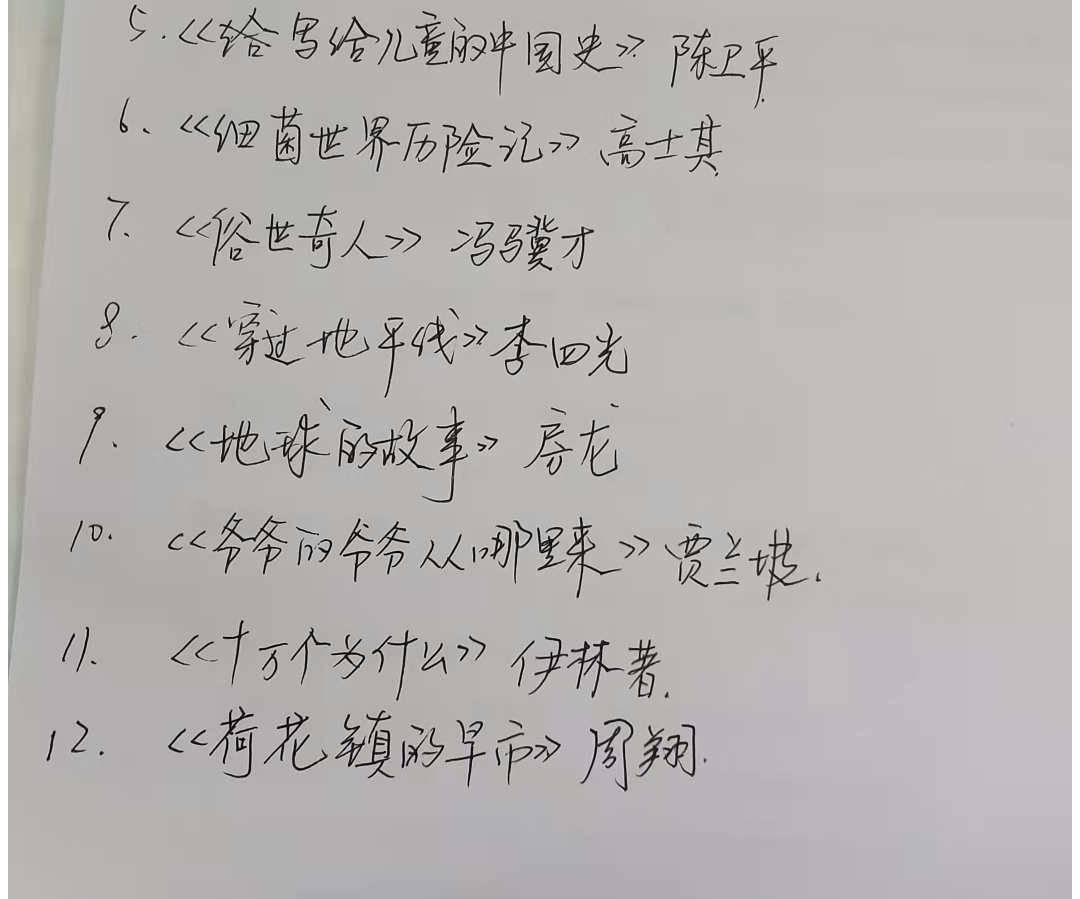 5.《给写给儿童的中国史》陈卫平
6、《细菌世界历险记》高士其
7.《俗世奇人》冯骥才
8.《穿过地平线》李四光
9.《地球的故事》房龙
10.《爷爷的爷爷从哪里来》贾兰坡.
11.《十万个为什么》伊林著.
12.《荷花镇的早市》周翔.